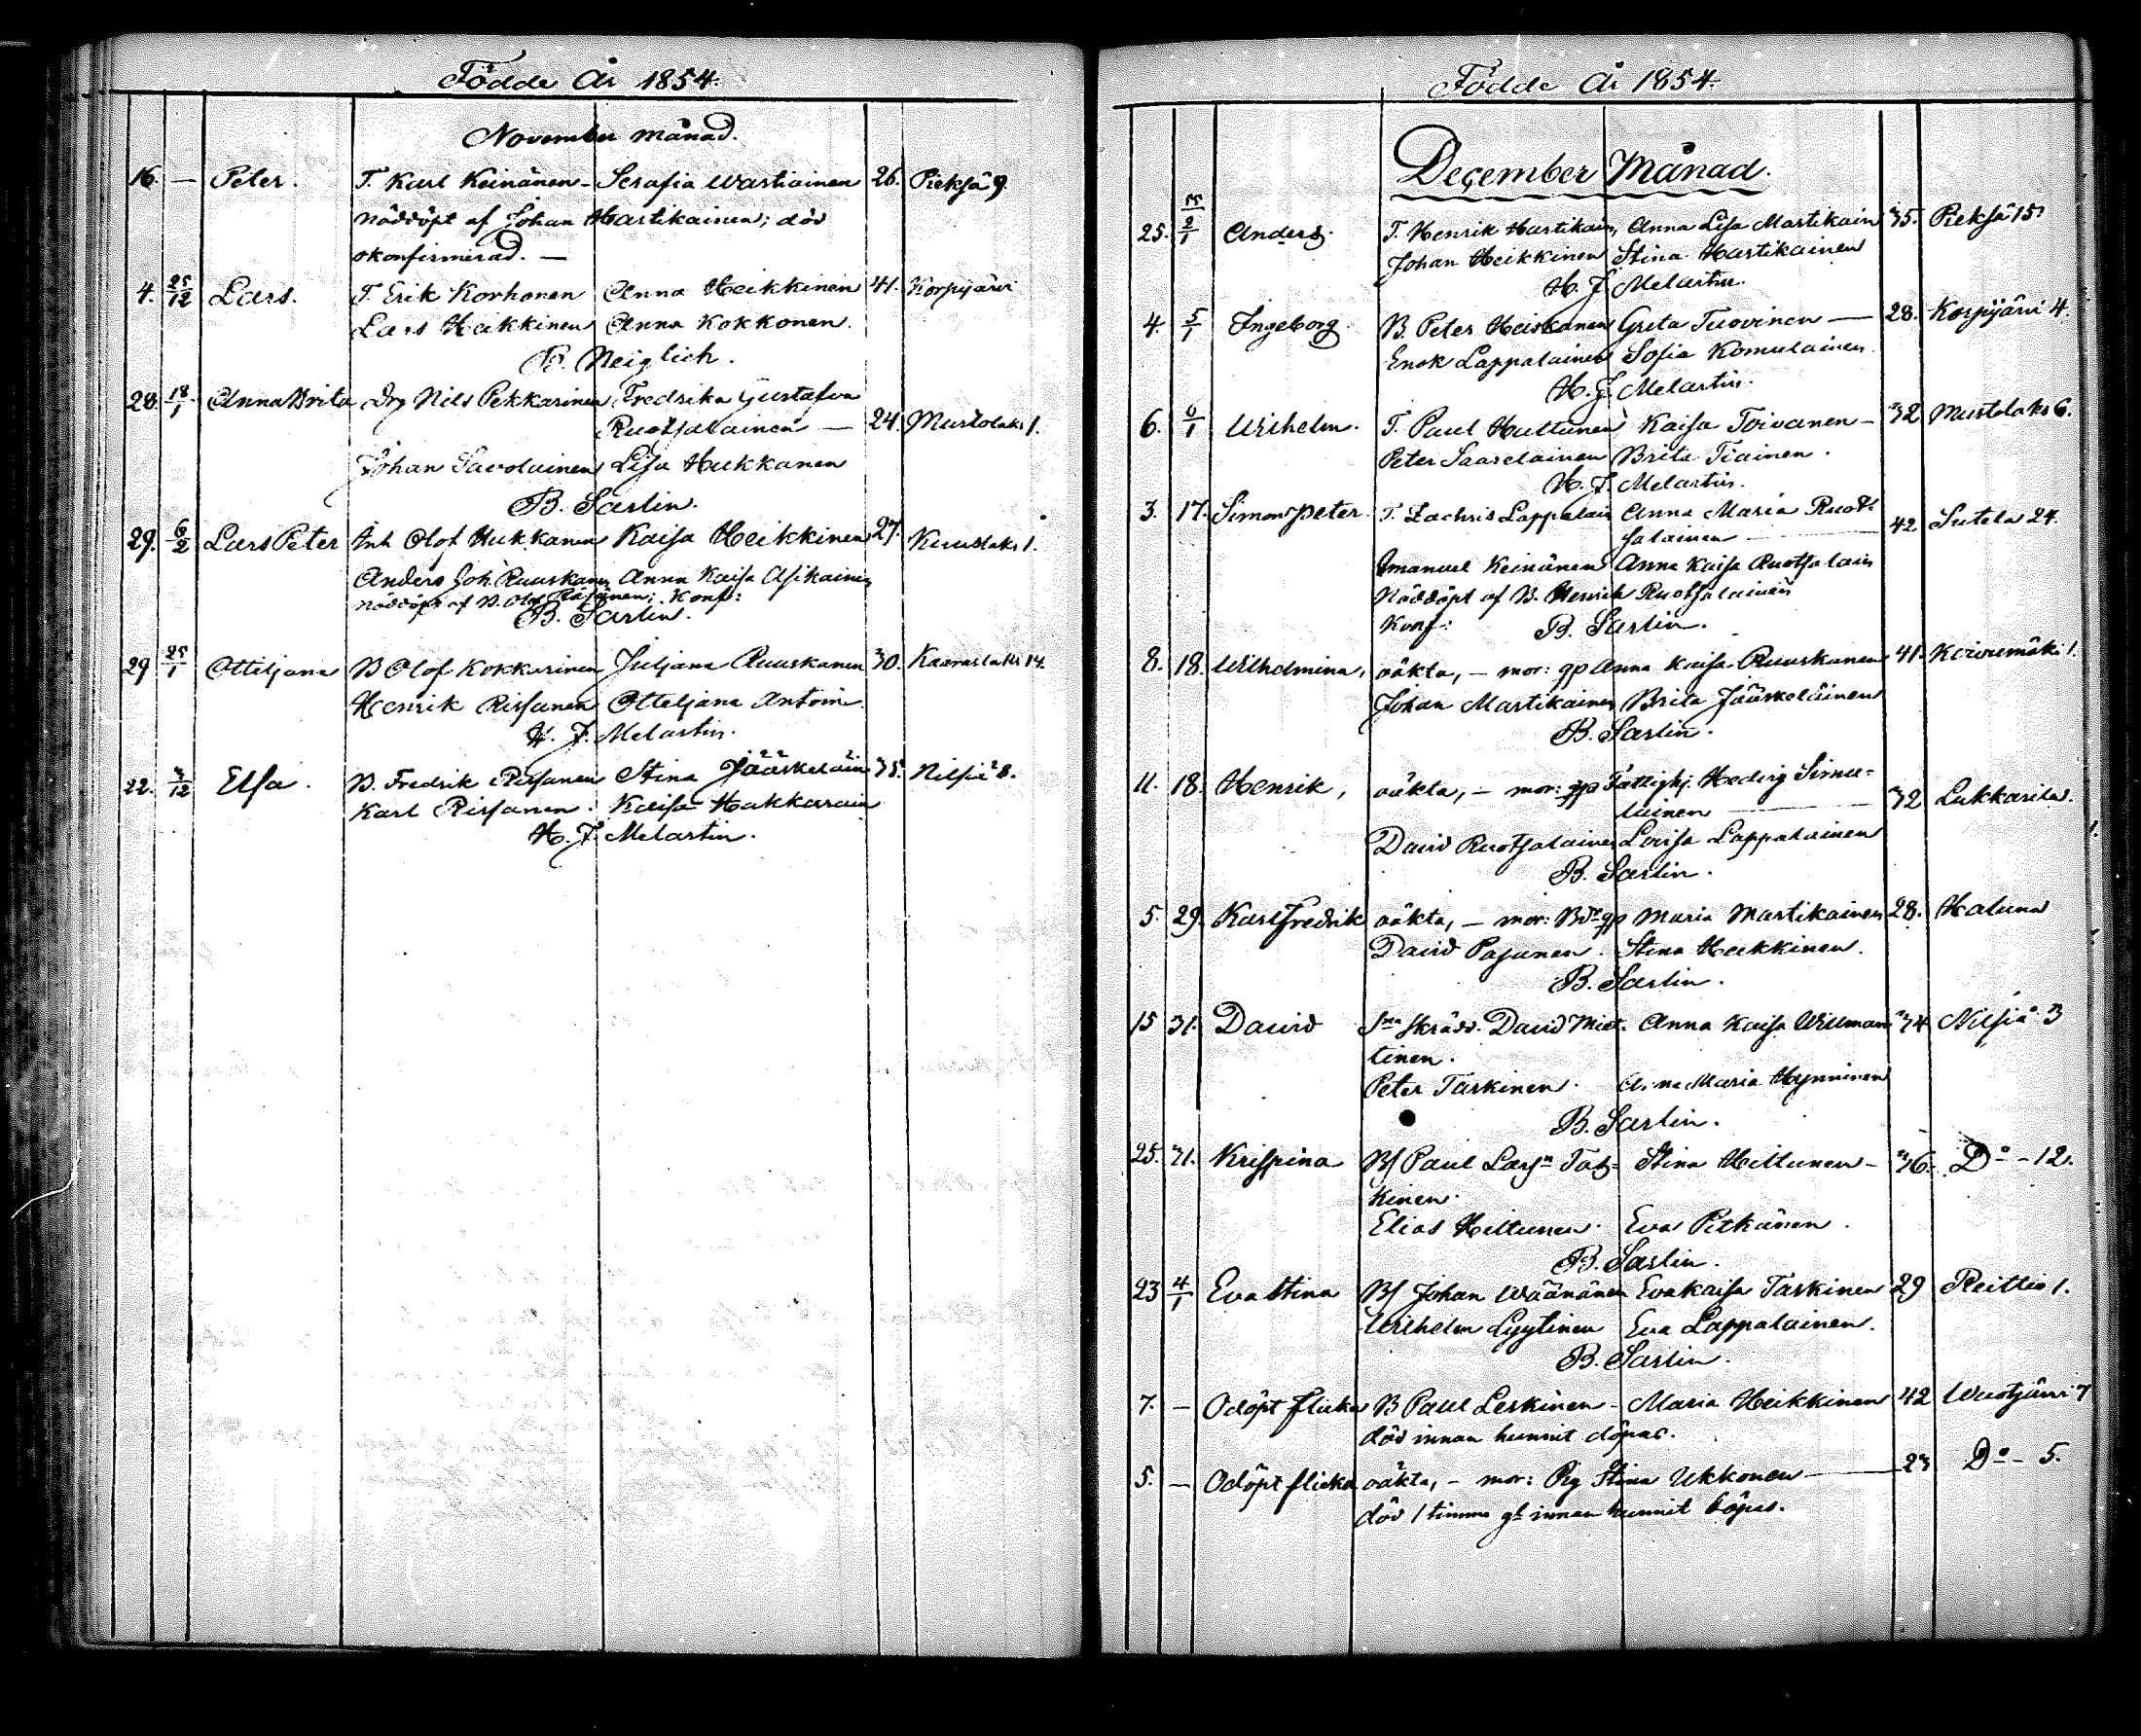 Födde År 1854.
November månad.
16. — Peter. T. Karl Keinänen - Serafia Wartiainen 26. Pieksä 9.
Nöddöpt af Johan Hartikainen; död
okonfirmerad. —
4. 25/12 Lars. T. Erik Korhonen Anna Heikkinen 41. Korpijärvi
Lars Heikkinen Anna Kokkonen.
B. Neiglich.
28. 18/1 Anna Brita Drg Nils Pekkarinen Fredrika Gustafva
Ruotsalainen — 24. Mustolaks 1.
Johan Savolainen Lisa Hukkanen
B. Sarlin.
29. 6/2 Lars Peter Inh Olof Hukkanen Kaisa Heikkinen 27. Kuuslaks 1.
Anders Joh Ruuskanen Anna Kaisa Asikainen
Nöddöpt af B. Olof Räsänen; Konf:
B. Sarlin.
29 25/1 Otteljana B Olof Kokkarinen Juljana Ruuskanen 30. Kaaraslaks 14.
Henrik Rissanen Otteljana Antoin
H. F. Melartin.
22. 3/12 Elsa. B. Fredrik Rissanen Stina Jääskeläin 35. Nilsiä 8.
Karl Rissanen. Kaisa Hakkarain
H. F. Melartin.
Födde År 1854.
December Månad.
25. 2/1 Anders. T. Henrik Hartikain, Anna Lisa Martikain 35. Pieksä 15.
Johan Heikkinen Stina Hartikainen
H. F. Melartin.
4. 5/1 Ingeborg. B. Peter Heiskanen Greta Tuovinen — 28. Korpijärvi 4.
Enok Lappalainen Sofia Komulainen.
H. F. Melartin.
6. 6/1 Wilhelm. T. Paul Huttunen Kaisa Toivanen - 32 Mustolaks 6.
Peter Saarelainen Brita Tiainen.
H. F. Melartin.
3. 17. Simon Peter. T. Zachris Lappalain Anna Maria Ruot-
salainen — 42. Sutela 24.
Emanuel Keinänen Anna Kaisa Ruotsalain
Nöddöpt af B. Henrik Ruotsalainen
Konf: B. Sarlin.
8. 18. Wilhelmina, oäkta, — mor: qp Anna Kaisa Ruuskanen 41. Koivumäki 1.
Johan Martikainen Brita Jääskeläinen
B. Sarlin.
11. 18. Henrik, oäkta, — mor: Fattighj. Hedvig Simu-
lainen — 32 Lukkarila.
David Ruotsalainen Lovisa Lappalainen
B. Sarlin.
5. 29. Karl Fredrik oäkta, — mor: Bdr qp Maria Martikainen 28. Haluna
David Pajunen. Stina Heikkinen.
B. Sarlin.
15 31. David Sn Skrädd. David Miet- Anna Kaisa Willman 34 Nilsiä 3
tinen.
Peter Taskinen. Anna Maria Hynninen
B. Sarlin.
25. 31. Krispina B/ Paul Larsn Tas- Stina Hiltunen - 36. Do - 12.
kinen.
Elias Hiltunen. Eva Pitkänen.
B. Sarlin.
23 4/1 Eva Stina B/ Johan Wäänänen Eva Kaisa Taskinen 29 Reittiö 1.
Wilhelm Lyytinen Eva Lappalainen.
B. Sarlin.
7. — Odöpt flicka B Paul Leskinen - Maria Heikkinen 42 Wuotjärvi 7
död innan hunnit döpas.
5. — Odöpt flicka oäkta, — mor: Pig Stina Ukkonen — 23 Do - 5.
död 1 timme gl innan hunnit döpas.